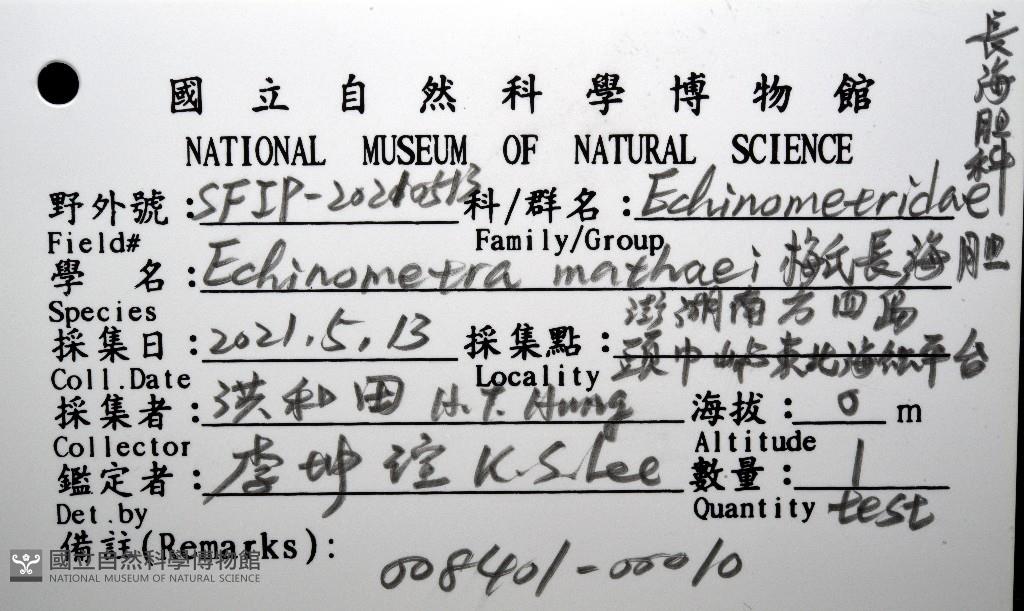 長海胆科
國立自然科學博物館
NATIONAL MUSEUM OF NATURAL SCIENCE
野外號:SFIP-20210513 科/群名:Echinometridae
Field# Family/Group
學名:Echinometra mathaei 梅氏長海胆
Species
澎湖南方四島
採集日:2021.5.13 採集點:頭巾嶼東北海蝕平台
Coll.Date Locality
採集者:洪和田 H.T. Hung 海拔:0 m
Collector Altitude
鑑定者:李坤瑄 K.S.Lee 數量:1
Det.by Quantity test
備註(Remarks):
008401-00010
國立自然科學博物館
NATIONAL MUSEUM OF NATURAL SCIENCE